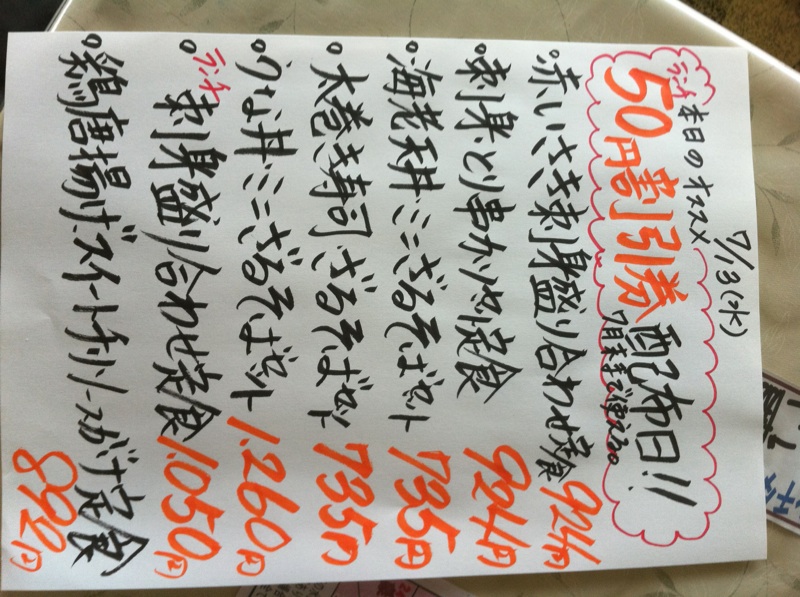 7/13(水)
本日のオススメ
ランチ
50円割引券配布日!!
7月末まで使える。
赤いさき刺身盛り合わせ定食 924円
刺身・とり串カツ定食 924円
海老天丼・ミニざるそばセット 735円
太巻き寿司・ざるそばセット 735円
うな丼・ミニざるそばセット 1.260円
ランチ刺身盛り合わせ定食 1.050円
鶏唐揚げ、スイートチリソースがけ定食 890円